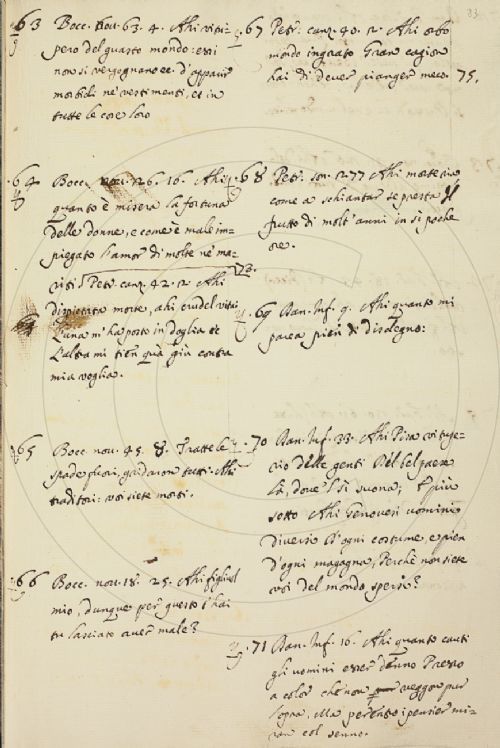 33
63 Bocc. nov. 63. 4. Ahi vitu-
pero del guasto mondo: essi
non si vergognano di apparir
morbidi ne' vestimenti, et in
tutte le cose loro
64 Bocc. nov. 26. 16. Ahi
quanto è misera la fortuna
delle donne, e come è male im-
piegato l'amor di molte ne' ma-
riti. Petr. canz. 42. 2. Ahi
dispietata morte, ahi crudel vita
L'una m'ha posto in doglia
L'altra mi tien qua giù contra
mia voglia.
65 Bocc. nov. 45. 8. Tratte le
spade fuori, gridaron tutti. Ahi
traditori: voi siete morti.
66 Bocc. nov. 18. 25. Ahi figliuol
mio, dunque per questo t'hai
tu lasciato aver male?
67 Petr. canz. 40. 2. Ahi orbo
mondo ingrato Gran cagion
hai di dever pianger meco. 75.
68 Petr. son. 277 Ahi morte ria
come a schiantar se' presta Il
frutto di molt'anni in sì poche
ore.
72.
69 Dan. Inf. 9. Ahi quanto mi
parea pien di disdegno:
70 Dan. Inf. 33. Ahi Pisa vitupe-
rio delle genti Del bel paese
là, dove 'l sì suona; E più
sotto Ahi Genovesi uomini
diversi D'ogni costume, e pien
d'ogni magagna, Perchè non siete
voi del mondo spersi?
71 Dan. Inf. 16. Ahi quanto cauti
gli uomini esser denno Presso
a color che non veggon pur
l'opra, Ma per entro i pensier mi-
ran col senno.